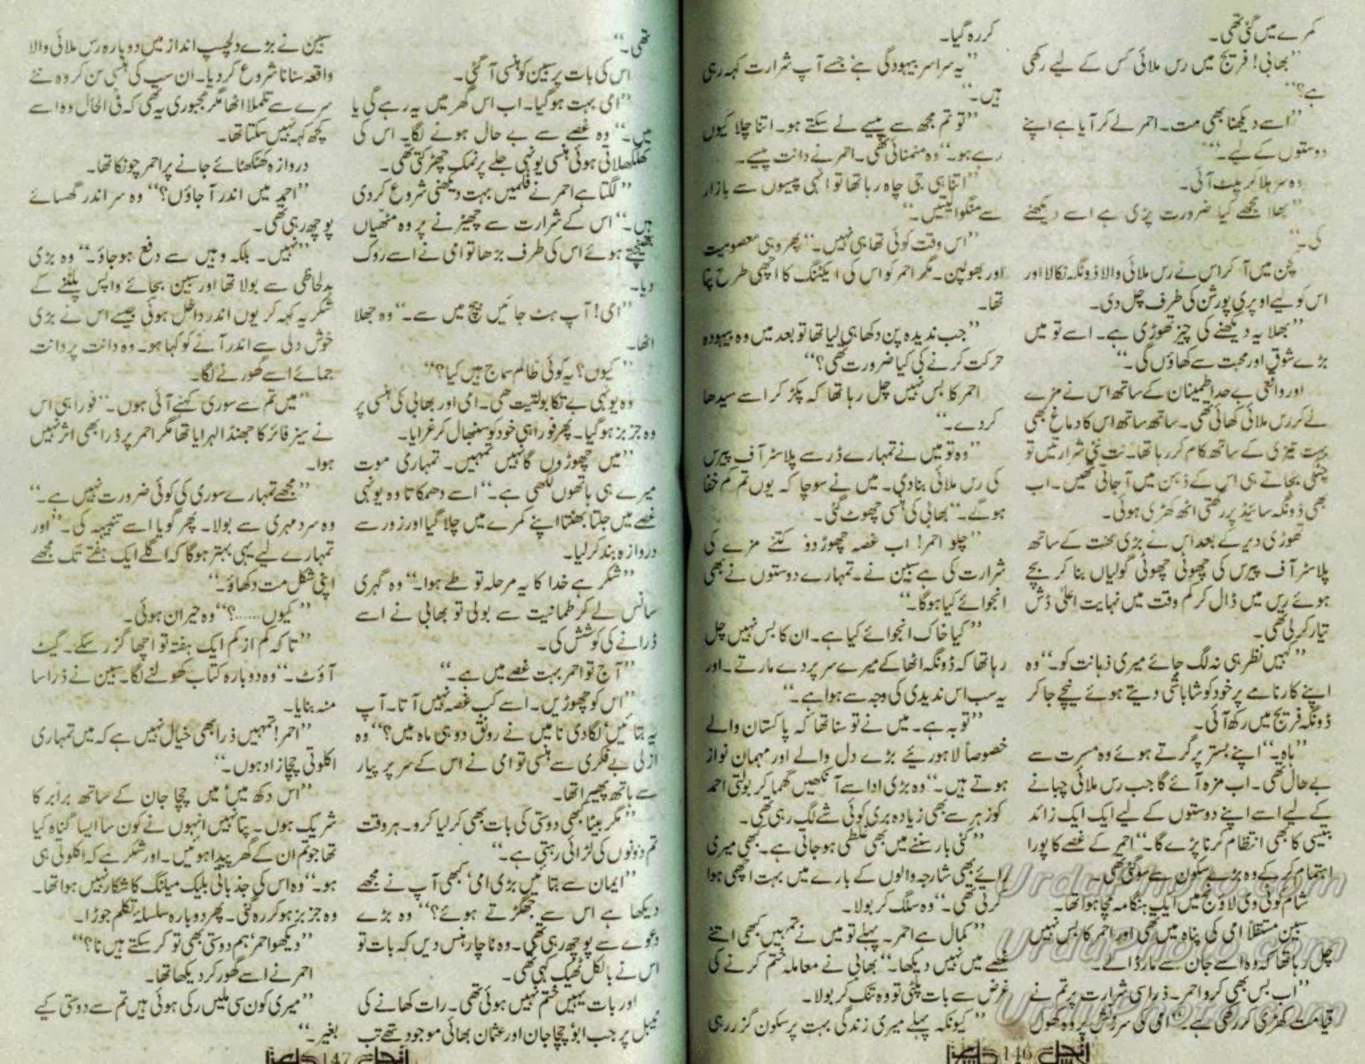 کمرے میں گئی تھی۔
”بھابی! فریج میں رس ملائی کس کے لیے رکھی
ہے؟“
”اسے دیکھنا بھی مت۔ احمر لے کر آیا ہے اپنے
دوستوں کے لیے۔“
وہ سر ہلا کر پلٹ آئی۔
”بھلا مجھے کیا ضرورت پڑی ہے اسے دیکھنے
کی۔“
کچن میں آ کر اس نے رس ملائی والا ڈونگہ نکالا اور
اس کو لیے اوپری پورشن کی طرف چل دی۔
”بھلا یہ دیکھنے کی چیز تھوڑی ہے۔ اسے تو میں
بڑے شوق اور محبت سے کھاؤں گی۔“
اور واقعی بے حد اطمینان کے ساتھ اس نے مزے
لے کر رس ملائی کھائی تھی۔ ساتھ ساتھ اس کا دماغ بھی
بہت تیزی کے ساتھ کام کر رہا تھا۔ نت نئی شرارتیں تو
چٹکی بجاتے ہی اس کے ذہن میں آ جاتی تھیں۔ اب
بھی ڈونگہ سائیڈ پر رکھتی اٹھ کھڑی ہوئی۔
تھوڑی دیر کے بعد اس نے بڑی محنت کے ساتھ
پلاسٹر آف پیرس کی چھوٹی چھوٹی گولیاں بنا کر بچے
ہوئے رس میں ڈال کر کم وقت میں نہایت اعلیٰ ڈش
تیار کر لی تھی۔
”کہیں نظر ہی نہ لگ جائے میری ذہانت کو۔“ وہ
اپنے کارنامے پر خود کو شاباشی دیتے ہوئے نیچے جا کر
ڈونگہ فریج میں رکھ آئی۔
”ہاہ۔“ اپنے بستر پر گرتے ہوئے وہ مسرت سے
بے حال تھی۔ اب مزہ آئے گا جب رس ملائی چبانے
کے لیے اسے اپنے دوستوں کے لیے ایک ایک زائد
بتیسی کا بھی انتظام کرنا پڑے گا۔“ احمر کے غصے کا پورا
اہتمام کر کے وہ بڑے سکون سے سو گئی تھی۔
شام کو ٹی وی لاؤنج میں ایک ہنگامہ مچا ہوا تھا۔
سبین مستقلاً امی کی پناہ میں تھی اور احمر کا بس نہیں
چل رہا تھا کہ وہ اسے جان سے مار ڈالے۔
”اب بس بھی کرو احمر۔ ذرا سی شرارت پر تم نے
قیامت کھڑی کر رکھی ہے۔“ امی کی سرزنش پر وہ کھول
کر رہ گیا۔
”یہ سراسر بیہودگی ہے جسے آپ شرارت کہہ رہی
ہیں۔“
”تو تم مجھ سے پیسے لے سکتے ہو۔ اتنا چلا کیوں
رہے ہو۔“ وہ منمنائی تھی۔ احمر نے دانت پیسے۔
”اتنا ہی جی چاہ رہا تھا تو انہی پیسوں سے بازار
سے منگوا لیتیں۔“
”اس وقت کوئی تھا ہی نہیں۔“ پھر وہی معصومیت
اور بھولپن۔ مگر احمر کو اس کی ایکٹنگ کا اچھی طرح پتا
تھا۔
”جب ندیدہ پن دکھا ہی لیا تھا تو بعد میں وہ بیہودہ
حرکت کرنے کی کیا ضرورت تھی؟“
احمر کا بس نہیں چل رہا تھا کہ پکڑ کر اسے سیدھا
کر دے۔“
”وہ تو میں نے تمہارے ڈر سے پلاسٹر آف پیرس
کی رس ملائی بنا دی۔ میں نے سوچا کہ یوں تم کم خفا
ہو گے۔“ بھابی کی ہنسی چھوٹ گئی۔
”چلو احمر! اب غصہ چھوڑ دو‘ کتنے مزے کی
شرارت کی ہے سبین نے۔ تمہارے دوستوں نے بھی
انجوائے کیا ہوگا۔“
”کیا خاک انجوائے کیا ہے۔ ان کا بس نہیں چل
رہا تھا کہ ڈونگہ اٹھا کے میرے سر پر دے مارتے۔ اور
یہ سب اس ندیدی کی وجہ سے ہوا ہے۔“
”توبہ ہے۔ میں نے تو سنا تھا کہ پاکستان والے
خصوصاً لاہوریئے بڑے دل والے اور مہمان نواز
ہوتے ہیں۔“ وہ بڑی ادا سے آنکھیں گھما کر بولتی احمد
کو زہر سے بھی زیادہ بری کوئی شے لگ رہی تھی۔
”کئی بار سننے میں بھی غلطی ہو جاتی ہے۔ کبھی میری
رائے بھی شارجہ والوں کے بارے میں بہت اچھی ہوا
کرتی تھی۔“ وہ سلگ کر بولا۔
”کمال ہے احمر۔ پہلے تو میں نے تمہیں کبھی اتنے
غصے میں نہیں دیکھا۔“ بھابی نے معاملہ ختم کرنے کی
غرض سے بات پلٹی تو وہ تنک کر بولا۔
”کیونکہ پہلے میری زندگی بہت پرسکون گزر رہی
آنچل 146
تھی۔“
اس کی بات پر سبین کو ہنسی آ گئی۔
”امی بہت ہو گیا۔ اب اس گھر میں یہ رہے گی یا
میں۔“ وہ غصے سے بے حال ہونے لگا۔ اس کی
کھلکھلاتی ہوئی ہنسی یونہی جلے پر نمک چھڑکتی تھی۔
”لگتا ہے احمر نے فلمیں بہت دیکھنی شروع کر دی
ہیں۔“ اس کے شرارت سے چھیڑنے پر وہ مٹھیاں
بھینچتے ہوئے اس کی طرف بڑھا تو امی نے اسے روک
دیا۔
”امی! آپ ہٹ جائیں بیچ میں سے۔“ وہ جھلا
اٹھا۔
”کیوں؟ یہ کوئی ظالم سماج ہیں کیا؟“
وہ یونہی بے تکا بولتی تھی۔ امی اور بھابی کی ہنسی پر
وہ جز بز ہو گیا۔ پھر فوراً ہی خود کو سنبھال کر غرایا۔
”میں چھوڑوں گا نہیں تمہیں۔ تمہاری موت
میرے ہی ہاتھوں لکھی ہے۔“ اسے دھمکاتا وہ یونہی
غصے میں جلتا بھنتا اپنے کمرے میں چلا گیا اور زور سے
دروازہ بند کر لیا۔
”شکر ہے خدا کا یہ مرحلہ تو طے ہوا۔“ وہ گہری
سانس لے کر طمانیت سے بولی تو بھابی نے اسے
ڈرانے کی کوشش کی۔
”آج تو احمر بہت غصے میں ہے۔“
”اس کو چھوڑیں۔ اسے کب غصہ نہیں آتا۔ آپ
یہ بتائیں‘ لگا دی نا میں نے رونق دو ہی ماہ میں؟“ وہ
ازلی بے فکری سے ہنسی تو امی نے اس کے سر پر پیار
سے ہاتھ پھیرا تھا۔
”مگر بیٹا کبھی دوستی کی بات بھی کر لیا کرو۔ ہر وقت
تم دونوں کی لڑائی رہتی ہے۔“
”ایمان سے بتائیں بڑی امی‘ کبھی آپ نے مجھے
دیکھا ہے اس سے جھگڑتے ہوئے؟“ وہ بڑے
دعوے سے پوچھ رہی تھی۔ وہ ناچار ہنس دیں کہ بات تو
اس نے بالکل ٹھیک کہی تھی۔
اور بات یہیں ختم نہیں ہوئی تھی۔ رات کھانے کی
ٹیبل پر جب ابو‘ چچا جان اور عثمان بھائی موجود تھے تب
سبین نے بڑے دلچسپ انداز میں دوبارہ رس ملائی والا
واقعہ سنانا شروع کر دیا۔ ان سب کی ہنسی سن کر وہ نئے
سرے سے تلملا اٹھا مگر مجبوری یہ تھی کہ فی الحال وہ اسے
کچھ کہہ نہیں سکتا تھا۔
دروازہ کھٹکھٹائے جانے پر احمر چونکا تھا۔
”احمر میں اندر آ جاؤں؟“ وہ سر اندر گھسائے
پوچھ رہی تھی۔
”نہیں۔ بلکہ وہیں سے دفع ہو جاؤ۔“ وہ بڑی
بدلحاظی سے بولا تھا اور سبین بجائے واپس پلٹنے کے
شکریہ کہہ کر یوں اندر داخل ہوئی جیسے اس نے بڑی
خوش دلی سے اندر آنے کو کہا ہو۔ وہ دانت پر دانت
جمائے اسے گھورنے لگا۔
”میں تم سے سوری کہنے آئی ہوں۔“ فوراً ہی اس
نے سیز فائر کا جھنڈا لہرایا تھا مگر احمر پر ذرا بھی اثر نہیں
ہوا۔
”مجھے تمہارے سوری کی کوئی ضرورت نہیں ہے۔“
وہ سرد مہری سے بولا۔ پھر گویا اسے تنبیہہ کی۔ ”اور
تمہارے لیے یہی بہتر ہوگا کہ اگلے ایک ہفتے تک مجھے
اپنی شکل مت دکھاؤ۔“
”کیوں......؟“ وہ حیران ہوئی۔
”تاکہ کم از کم ایک ہفتہ تو اچھا گزر سکے۔ گیٹ
آؤٹ۔“ وہ دوبارہ کتاب کھولنے لگا۔ سبین نے ذرا سا
منہ بنایا۔
”احمر! تمہیں ذرا بھی خیال نہیں ہے کہ میں تمہاری
اکلوتی چچا زاد ہوں۔“
”اس دکھ میں‘ میں چچا جان کے ساتھ برابر کا
شریک ہوں۔ پتا نہیں انہوں نے کون سا ایسا گناہ کیا
تھا جو تم ان کے گھر پیدا ہوئیں۔ اور شکر ہے کہ اکلوتی ہی
ہو۔“ وہ اس کی جذباتی بلیک میلنگ کا شکار نہیں ہوا تھا۔
وہ جز بز ہو کر رہ گئی۔ پھر دوبارہ سلسلۂ تکلم جوڑا۔
”دیکھو احمر‘ ہم دوستی بھی تو کر سکتے ہیں نا؟“
احمر نے اسے گھور کر دیکھا تھا۔
”میری کون سی ملیں رکی ہوئی ہیں تم سے دوستی کیے
بغیر۔“
آنچل 147
UrduPhoto.com
UrduPhoto.com
UrduPhoto.com